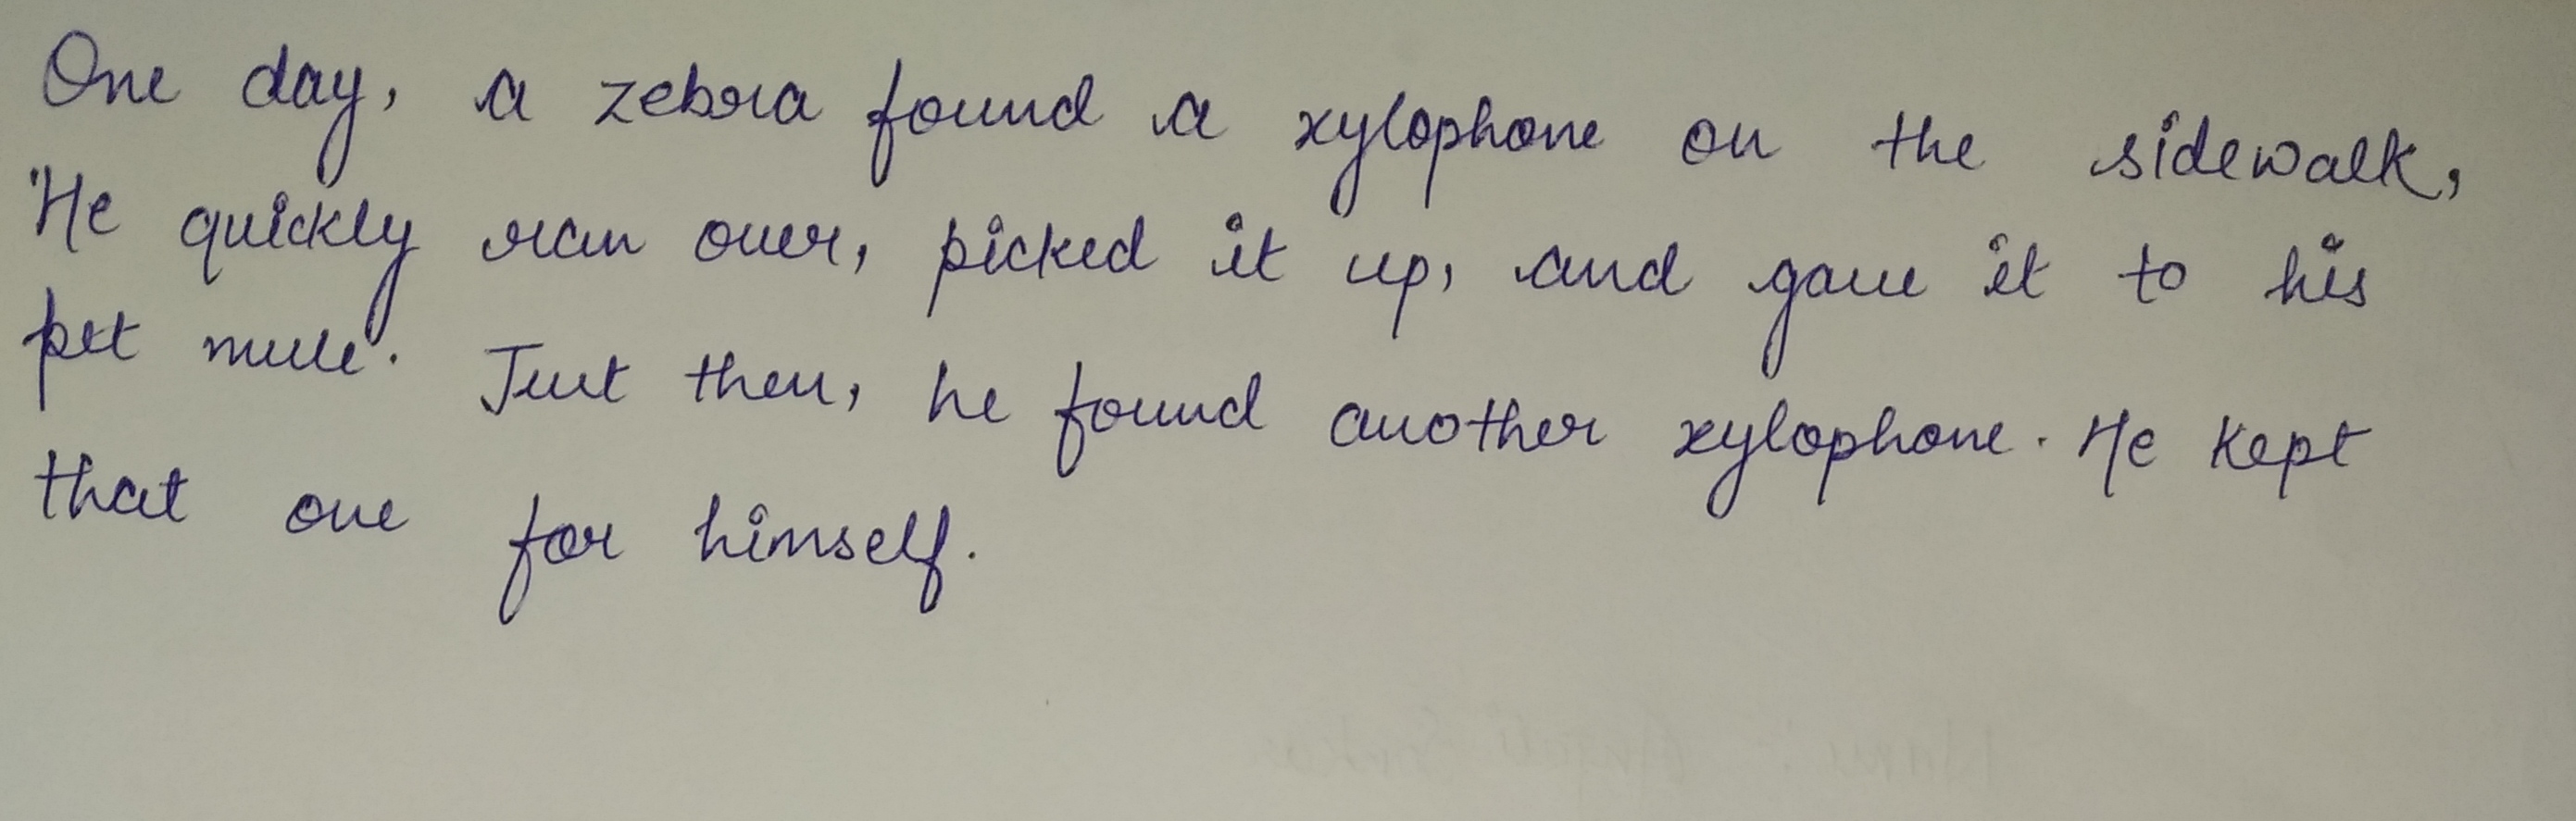 One day, a zebra found a xylophone on the sidewalk,
He quickly ran over, picked it up, and gave it to his
pet mule. Just then, he found another xylophone. He kept
that one for himself.